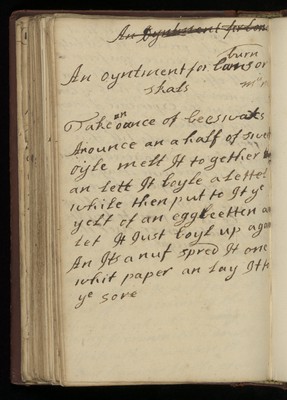 An Oyntment for
burn
An oyntment for or
skals
an
Take ounce of beeswaks
An ounce an a half of swee
oyle melt It to gether
an lett It boyle a lettel
while then put to It yᵉ
yelk of an egg beetten an
let It Just boyl up again
An Its a nuf spred It one
whit paper an lay It to
yᵉ sore